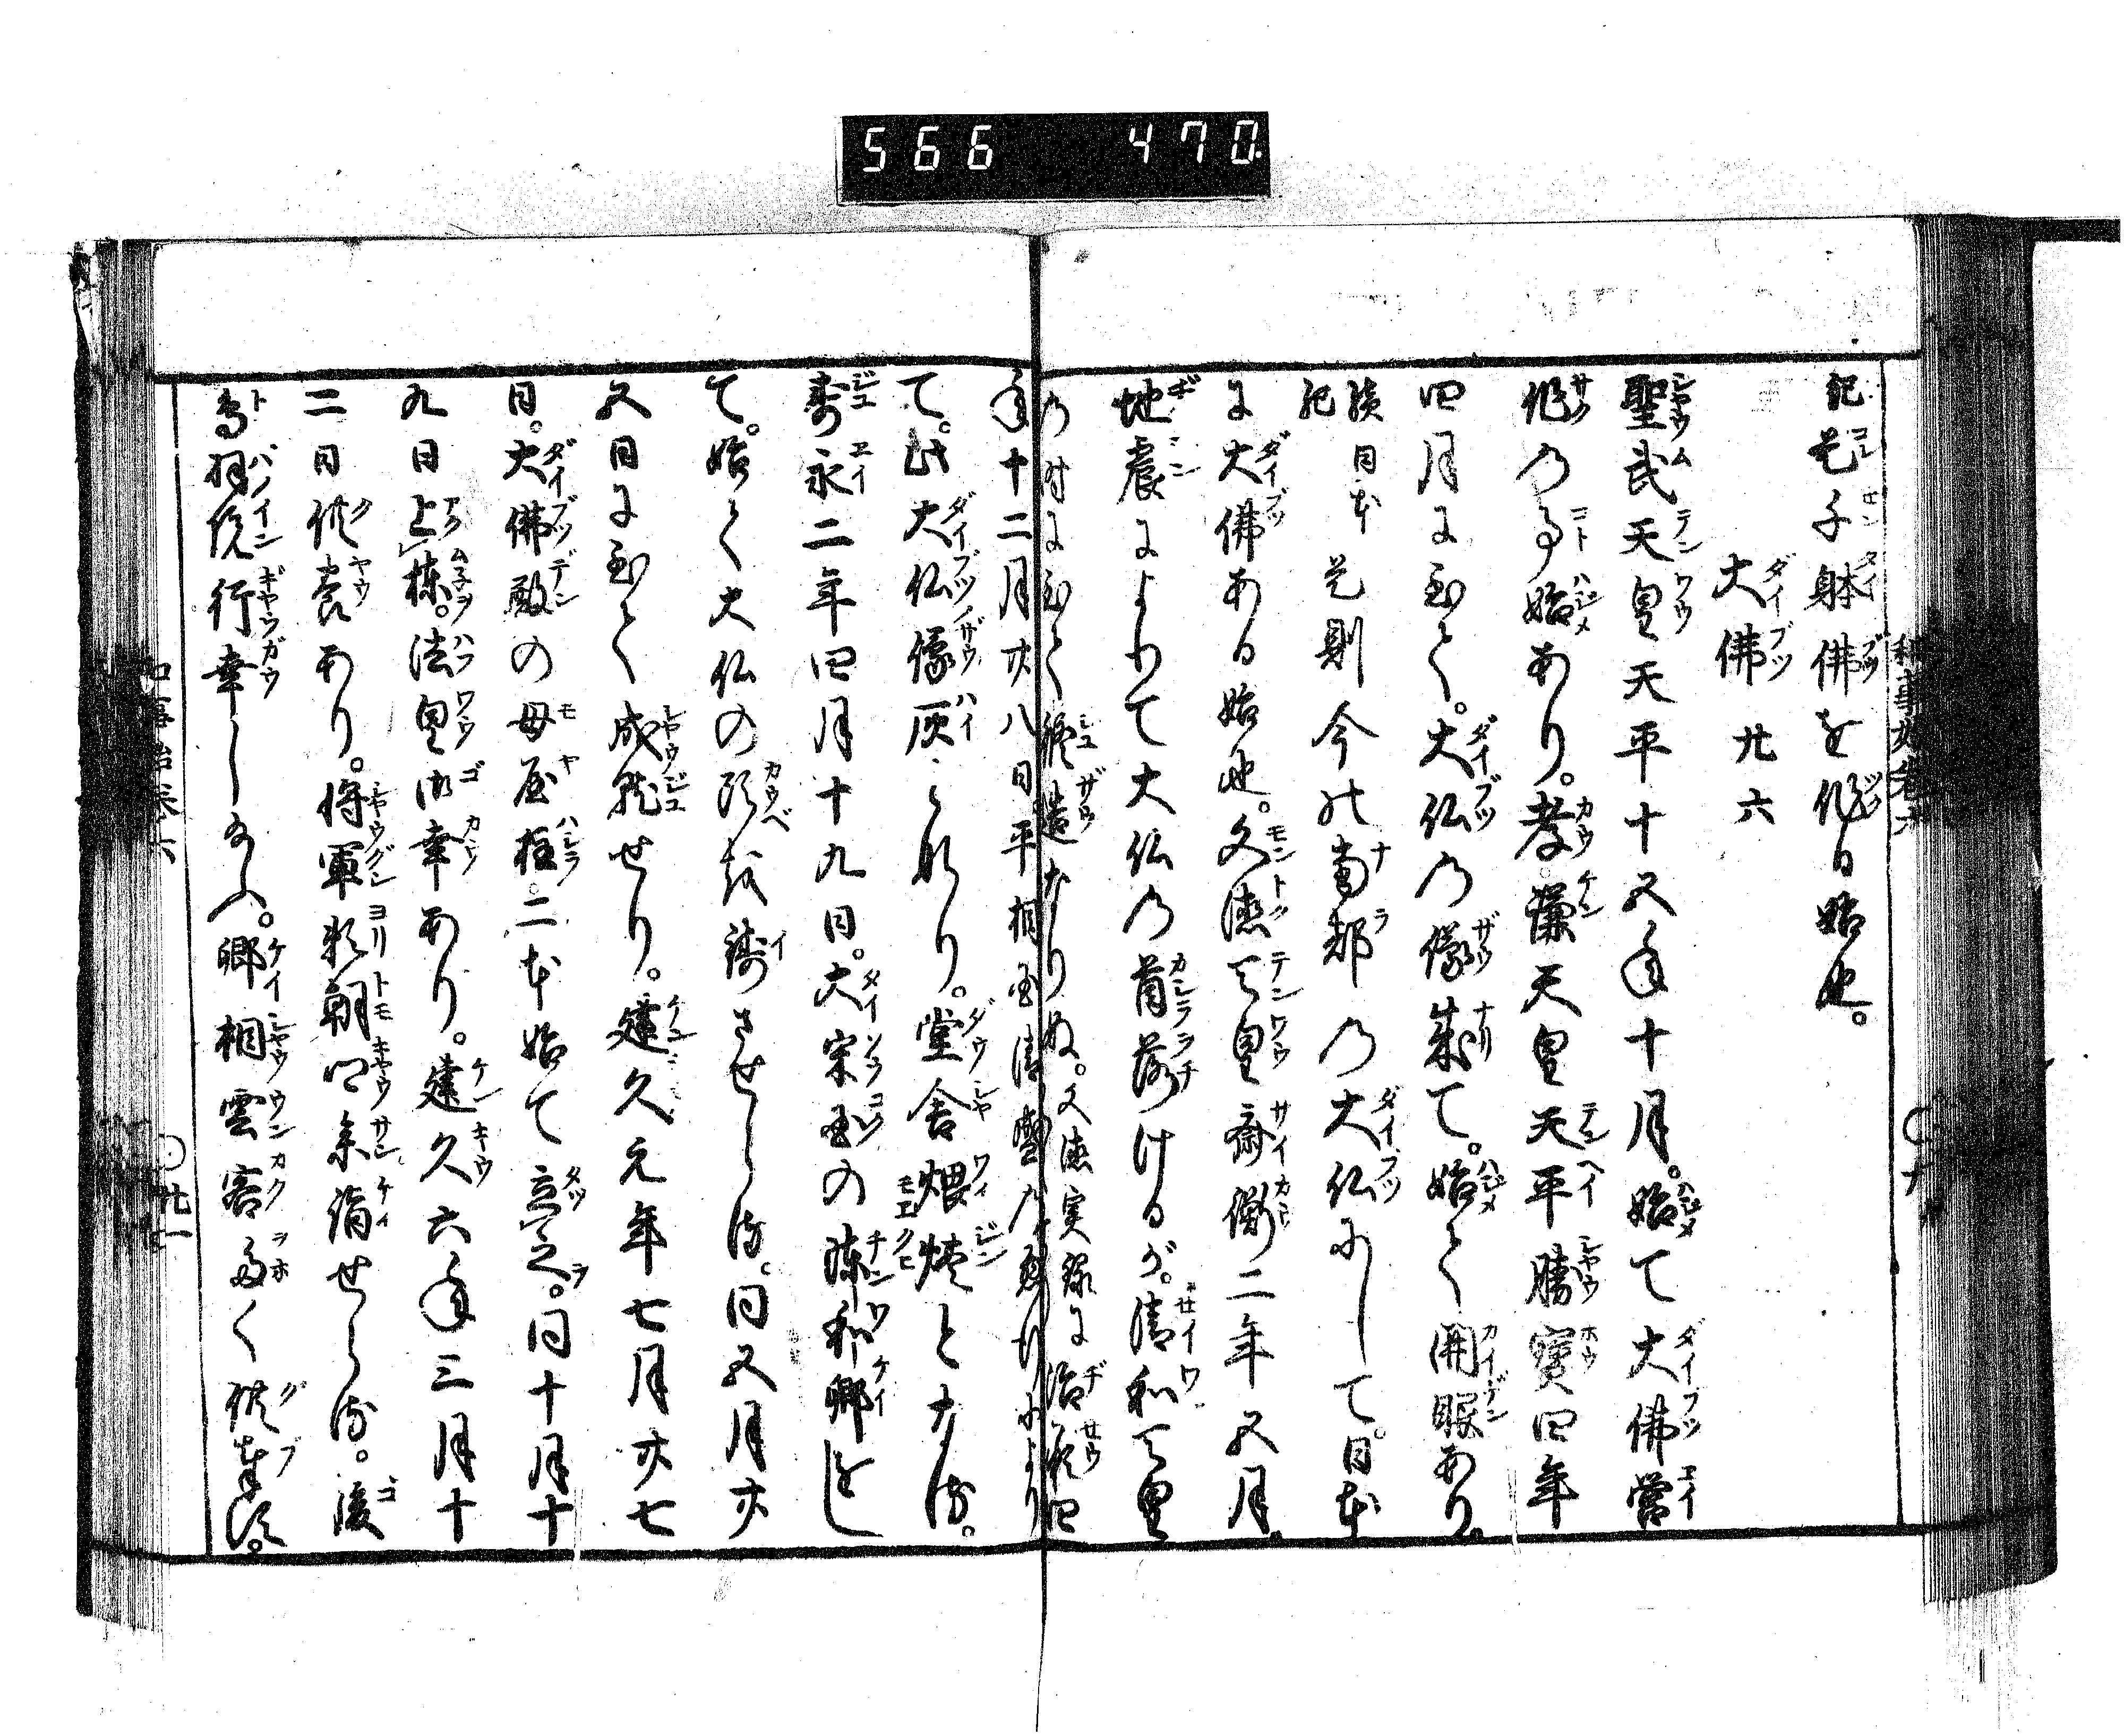 566 470
紀是千躰佛を作る始也。
大佛 廿六
聖武天皇天平十五年十月。始て大佛營
作の事始あり。孝謙天皇天平勝寶四年
四月に至て。大仏の像成て。始て開眼あり。
續日本紀 是則今の南都の大仏にして。日本
に大佛ある始也。文德天皇齋衡二年五月。
地震によりて大仏の首落けるが。淸和天皇
の時に至て終造なりぬ。文德実録に 治承四
年十二月廿八日平相國淸盛の悪行により
て。此大仏像灰となれり。堂舍煨燼となる。
壽永二年四月十九日。大宋國の陳和卿をし
て。始て大仏の頭を鑄させらる。同五月廿
五日に至て成就せり。建久元年七月廿七
日。大佛殿の母屋柱。二本始て立之。同十月十
九日上棟。法皇御幸あり。建久六年三月十
二日供養あり。將軍頼朝卿参詣せらる。後
鳥羽院行幸し玉ふ。卿相雲客多く供奉す。
和事始卷六
廿一